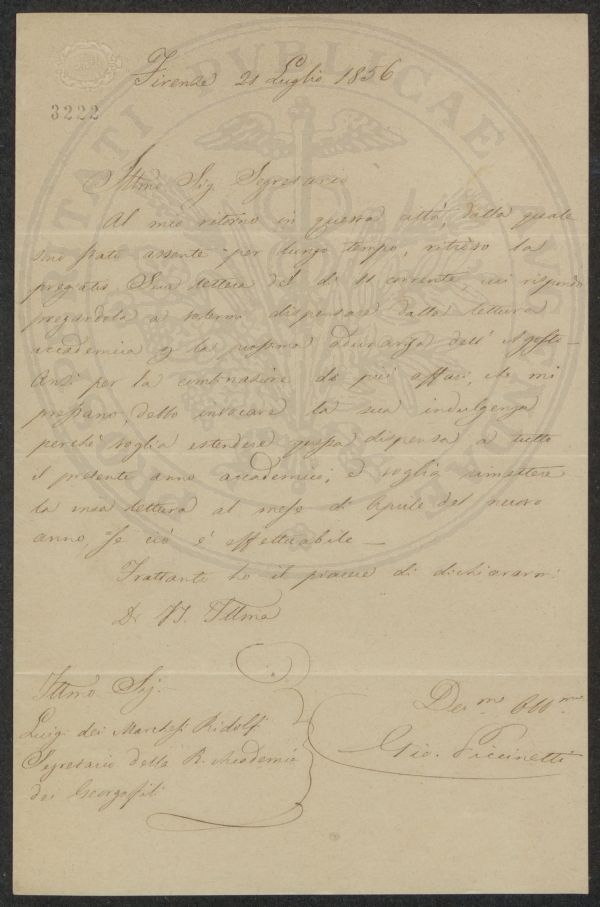 Firenze 21 Luglio 1856
3222
Illmo Sig. Segretario
Al mio ritorno in questa città, dalla quale
sono stato assente per lungo tempo, ritrovo la
pregatis. Sua lettera del dì 11 corrente, cui rispondo
pregandola a volermi dispensare dalla lettura
accademica la prossima adunanza dell' Agosto —
Anzi per la combinazione di più affari, che mi
pressano, debbo invocare la sua indulgenza
perchè voglia estendere questa dispensa a tutto
il presente anno accademico, e voglia rimettere
la mia lettura al mese di Aprile del nuovo
anno, se ciò è effettuabile —
Frattanto ho il piacere di dichiararmi
Di VS. Illma
Illmo Sig.
Luigi dei March. Ridolfi
Segretario della R. Accademia
dei Georgofili
Dev.mo Obb.mo
Gio. Piccinetti